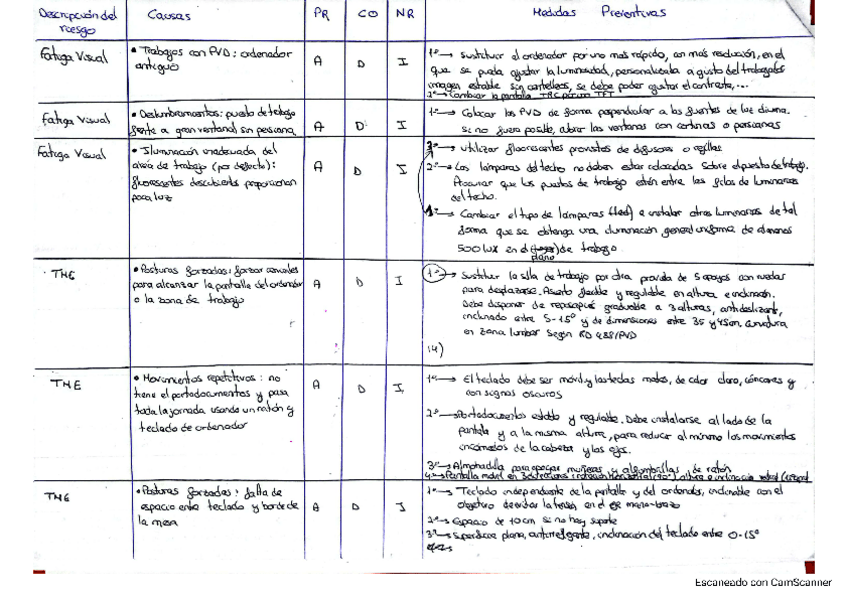 Descripción del riesgo
Causas
PR
CO
NR
Medidas Preventivas
Fatiga Visual
• Trabajos con PVD: ordenador
antiguo
A
D
I
1º → Sustituir el ordenador por uno mas rápido, con más resolución, en el
que se pueda ajustar la luminosidad, personalizarla a gusto del trabajador
imagen estable sin centelleos, se debe poder ajustar el contraste,...
2º → Cambiar la pantalla TRC por una TFT
Fatiga Visual
• Deslumbramientos: puesto de trabajo
frente a gran ventanal sin persiana
A
D
I
1º → Colocar las PVD de forma perpendicular a las fuentes de luz diurna.
si no fuera posible, las ventanas con cortinas o persianas
Fatiga Visual
• Iluminación inadecuada del
área de trabajo (por defecto):
fluorescentes descubiertos proporcionan
poca luz
A
D
I
3º → Utilizar fluorescentes provistos de difusores o rejillas
2º → Las lámparas del techo no deben estar colocadas sobre el puesto de trabajo.
Procurar que los puestos de trabajo estén entre las filas de luminarias
del techo.
1º → Cambiar el tipo de lámparas (led) e instalar otras luminarias de tal
forma que se obtenga una iluminación general uniforme de al menos
500 lux en el plano de trabajo
TME
• Posturas forzadas: forzar cervicales
para alcanzar la pantalla del ordenador
o la zona de trabajo
A
D
I
1º → Sustituir la silla de trabajo por otra provista de 5 apoyos con ruedas
para desplazarse. Asiento flexible y regulable en altura e inclinación.
Debe disponer de reposapiés graduable a 3 alturas, antideslizante,
inclinado entre 5-15º y de dimensiones entre 35 y 45cm, curvatura
en zona lumbar según RD 488/PVD
(4)
TME
• Movimientos repetitivos: no
tiene el portadocumentos y pasa
toda la jornada usando un ratón y
teclado de ordenador
A
D
I
1º → El teclado debe ser móvil y las teclas mates, de color claro, cóncavas y
con signos oscuros
2º → Portadocumentos estable y regulable. Debe instalarse al lado de la
pantalla y a la misma altura, para reducir al mínimo los movimientos
incómodos de la cabeza y los ojos.
3º → Almohadilla para apoyar muñecas y alfombrillas de ratón
4º → Pantalla móvil en 3 direcciones: rotación horizontal (90º), altura e inclinación vertical
TME
• Posturas forzadas: falta de
espacio entre teclado y borde de
la mesa
A
D
I
1º → Teclado independiente de la pantalla y del ordenador, inclinable con el
objetivo de evitar la tensión en el eje mano-brazo
2º → Espacio de 10cm si no hay soporte
3º → Superficie plana, antirreflejante, inclinación del teclado entre 0-15º
Escaneado con CamScanner